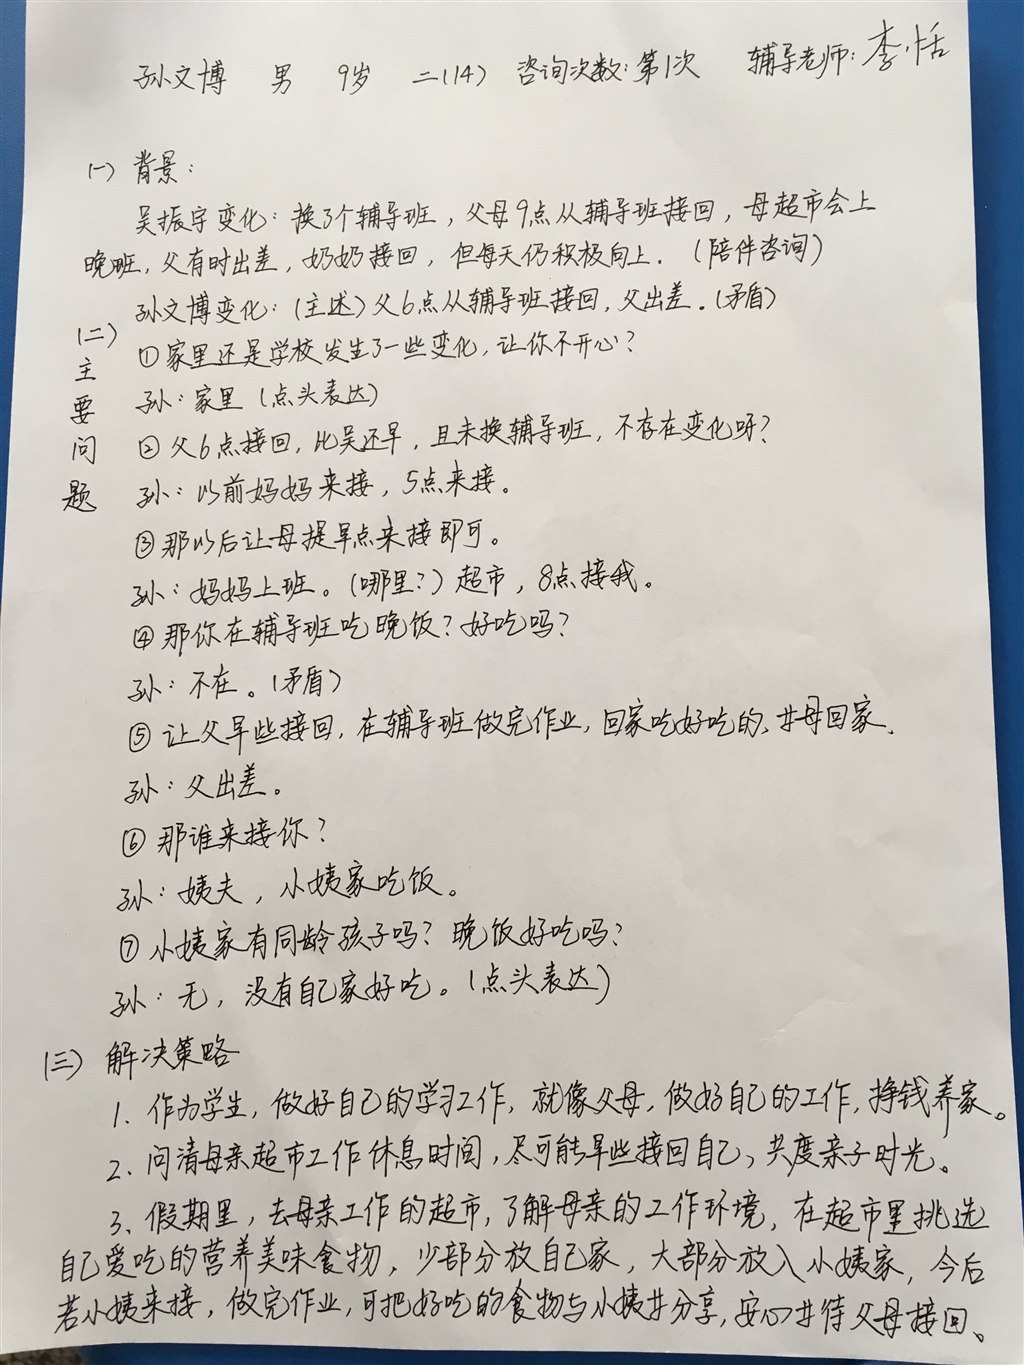 孙文博 男 9岁 二(14) 咨询次数：第1次 辅导老师：李恬
(一) 背景：
吴振宇变化：换了个辅导班，父母9点从辅导班接回，母超市会上
晚班，父有时出差，奶奶接回，但每天仍积极向上。(陪伴咨询)
孙文博变化：(主述)父6点从辅导班接回，父出差。(矛盾)
(二)主要问题
①家里还是学校发生了一些变化，让你不开心？
孙：家里(点头表达)
②父6点接回，比吴还早，且未换辅导班，不存在变化呀？
孙：以前妈妈来接，5点来接。
③那以后让母提早点来接即可。
孙：妈妈上班。(哪里？)超市，8点接我。
④那你在辅导班吃晚饭？好吃吗？
孙：不在。(矛盾)
⑤让父早些接回，在辅导班做完作业，回家吃好吃的、等母回家。
孙：父出差。
⑥那谁来接你？
孙：姨夫，小姨家吃饭。
⑦小姨家有同龄孩子吗？晚饭好吃吗？
孙：无，没有自己家好吃。(点头表达)
(三) 解决策略
1. 作为学生，做好自己的学习工作，就像父母，做好自己的工作，挣钱养家。
2. 问清母亲超市工作休息时间，尽可能早些接回自己、共度亲子时光。
3. 假期里，去母亲工作的超市，了解母亲的工作环境，在超市里挑选
自己爱吃的营养美味食物，少部分放自己家，大部分放入小姨家，今后
若小姨来接，做完作业，可把好吃的食物与小姨等分享，安心等待父母接回。